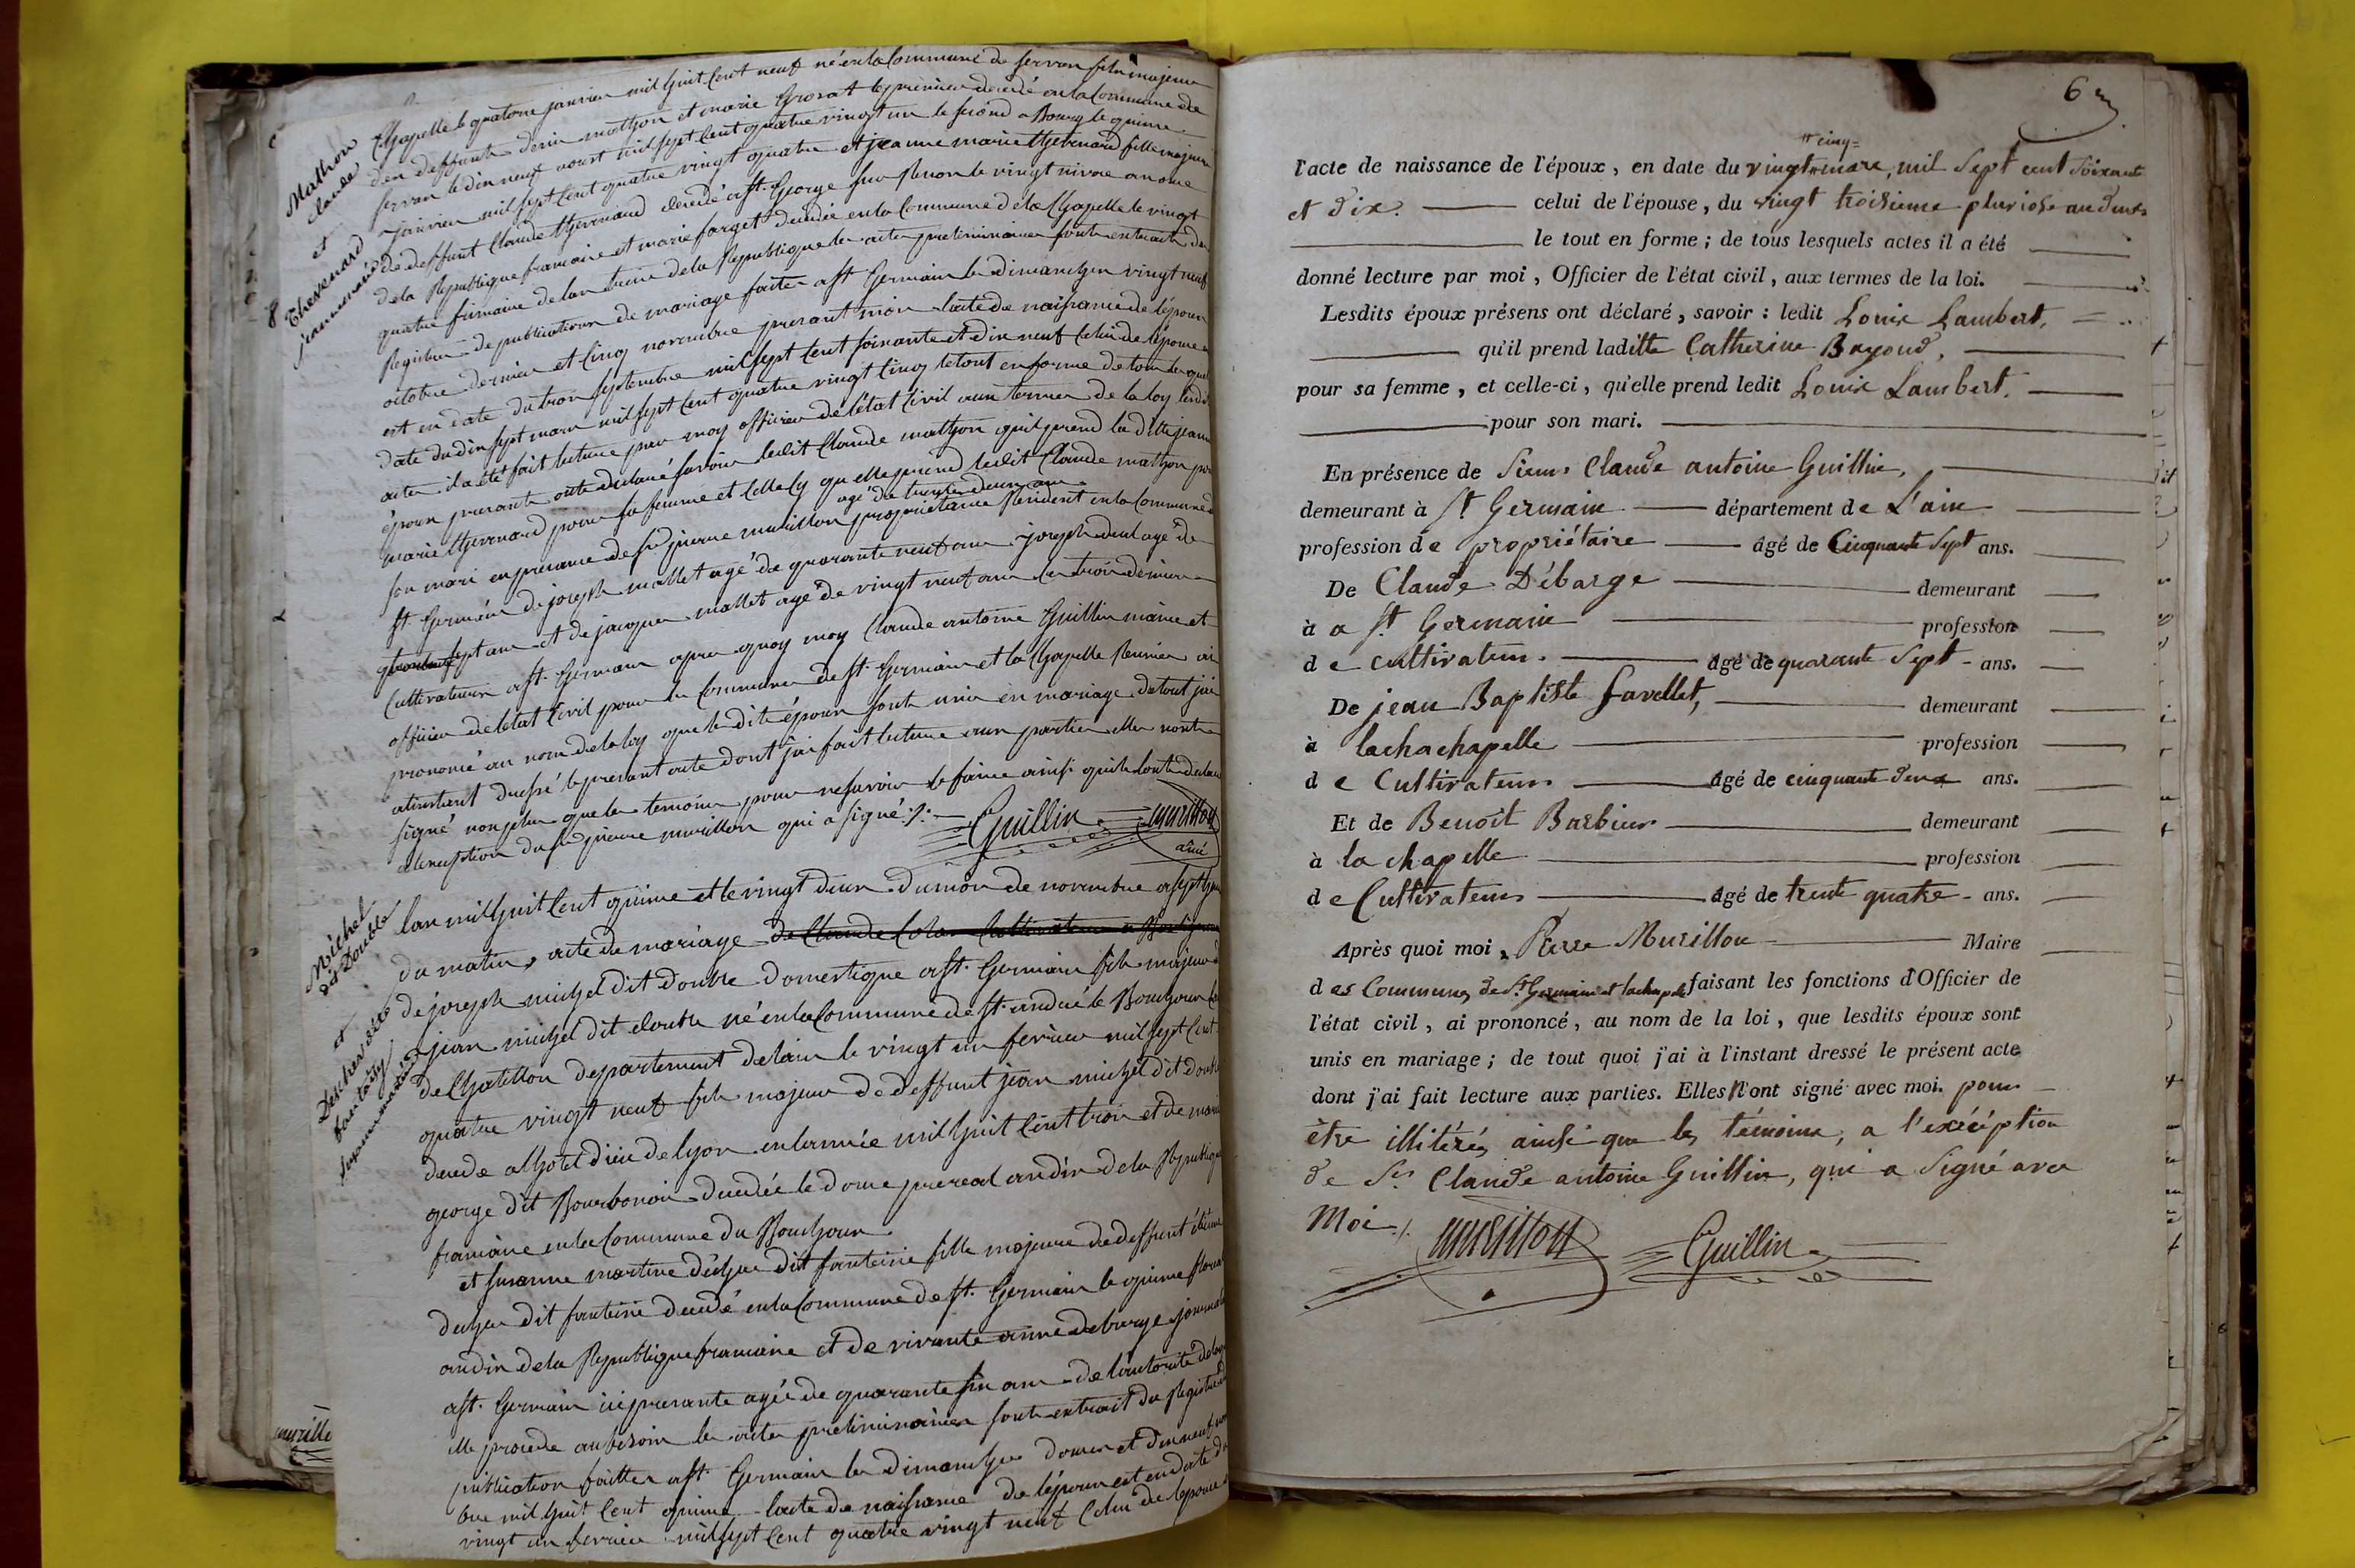 Mathon
Claude
et
Thevenard
jeanne marie
8
Chapelle le quatorze janvier mil huit cent neuf né en la Commune de servan fils majeur
servan le dix neuf aoust mil sept cent quatre vingt un le second a Bourg le quinze
janvier mil sept cent quatre vingt quatre et jeanne marie thevenard fille majeure
de deffunt Claude thevenard décédé a st. George sur Renon le vingt nivose an onze
de la Republique francaise et marie farget décédée en la Commune de la Chapelle le vingt
quatre frimaire de lan treize de la Republique les actes preliminaires sont extraits des
Registres de publications de mariage faites a st Germain les dimanches vingt neuf
octobre dernier et cinq novembre present mois lacte de naissance de lépoux
est en date du trois septembre mil sept cent soixante et dix neuf celui de lépouse
date du dix sept mars mil sept cent quatre vingt cinq le tout en forme de tous lesquels
actes il a été fait lecture par moy officier de létat Civil aux termes de la loy lesdits
époux presents ont déclaré savoir ledit Claude mathon quil prend la ditte jeanne
marie thevenard pour sa femme et celle cy quelle prend ledit Claude mathon pour
agé de trente deux ans
son mari en presence de sr pierre murillon proprietaire Resident en la Commune de
st Germain de joseph mallet agé de quarante neuf ans joseph agé de
sept ans et de jacques mallet agé de vingt neuf ans les trois derniers
Cultivateurs a st. Germain apres quoy moy Claude antoine Guillin maire et
officier de létat Civil pour les Communes de st Germain et la Chapelle Reunies ai
prononcé au nom de la loy que lesdits époux sont unis en mariage de tout jai
alinstant dressé le present acte dont jai fait lecture aux parties elles nont
signé non plus que les temoins pour ne savoir le faire ainsi quils lont déclaré
alexception du sr pierre murillon qui a signé
Guillin murillon
ainé
Michel
dit Double
et
Suzanne martine
lan mil huit cent quinze et le vingt deux du mois de novembre a sept heures
du matin, acte de mariage
de joseph michel dit double domestique a st. Germain fils majeur de
jean michel dit double né en la Commune de st andré le Bouchoux
de Chatillon departement de lain le vingt un fevrier mil sept cent
quatre vingt neuf fils majeur de deffunt jean michel dit double
décédé a lhotel dieu de lyon en lannée mil huit cent trois et de marie
george dit Bourbonois décédée le douze prereal an dix de la Republique
francaise en la Commune du Bouchoux
et suzanne martine décher dit fontaine fille majeure de deffunt étienne
decher dit fontaine décédé en la Commune de st. Germain le quinze floreal
an dix de la Republique francaise et de vivante anne debarge journaliere
a st. Germain ici presente agée de quarante six ans de lautorité de laquelle
elle procede au besoin les actes preliminaires sont extrait du Registre de
publication faittes a st. Germain les dimanches douze et dix neuf
bre mil huit cent quinze lacte de naissance de lépoux est en date du
vingt un fevrier mil sept cent quatre vingt neuf celui de lépouse
6
cinq
l'acte de naissance de l'époux, en date du vingt mars, mil sept cent soixante
et dix. celui de l'épouse, du vingt troisieme pluviose an deux
le tout en forme ; de tous lesquels actes il a été
donné lecture par moi, Officier de l'état civil, aux termes de la loi.
Lesdits époux présens ont déclaré, savoir : ledit Louis Lambert,
qu'il prend laditte Catherine Bayoud,
pour sa femme, et celle-ci, qu'elle prend ledit Louis Lambert.
pour son mari.
En présence de Sieur Claude antoine Guillin,
demeurant à St Germain département de L'ain
profession de propriétaire âgé de Cinquante Sept ans.
De Claude Débarge demeurant
à a St. Germain profession
de cultivateur. âgé de quarante Sept - ans.
De jean Baptiste favellet, demeurant
à lachachapelle profession
de Cultivateur âgé de cinquante deux ans.
Et de Benoit Barbier demeurant
à la chapelle profession
de Cultivateur âgé de trente quatre - ans.
Après quoi moi, Pierre Murillon Maire
des Communes de St. Germain et lachapelle faisant les fonctions d'Officier de
l'état civil, ai prononcé, au nom de la loi, que lesdits époux sont
unis en mariage ; de tout quoi j'ai à l'instant dressé le présent acte
dont j'ai fait lecture aux parties. Elles N'ont signé avec moi. pour
être illitérés ainsi que les témoins, a l'exécéption
de Sr. Claude antoine Guillin, qui a Signé avec
Moi./.
murillon Guillin